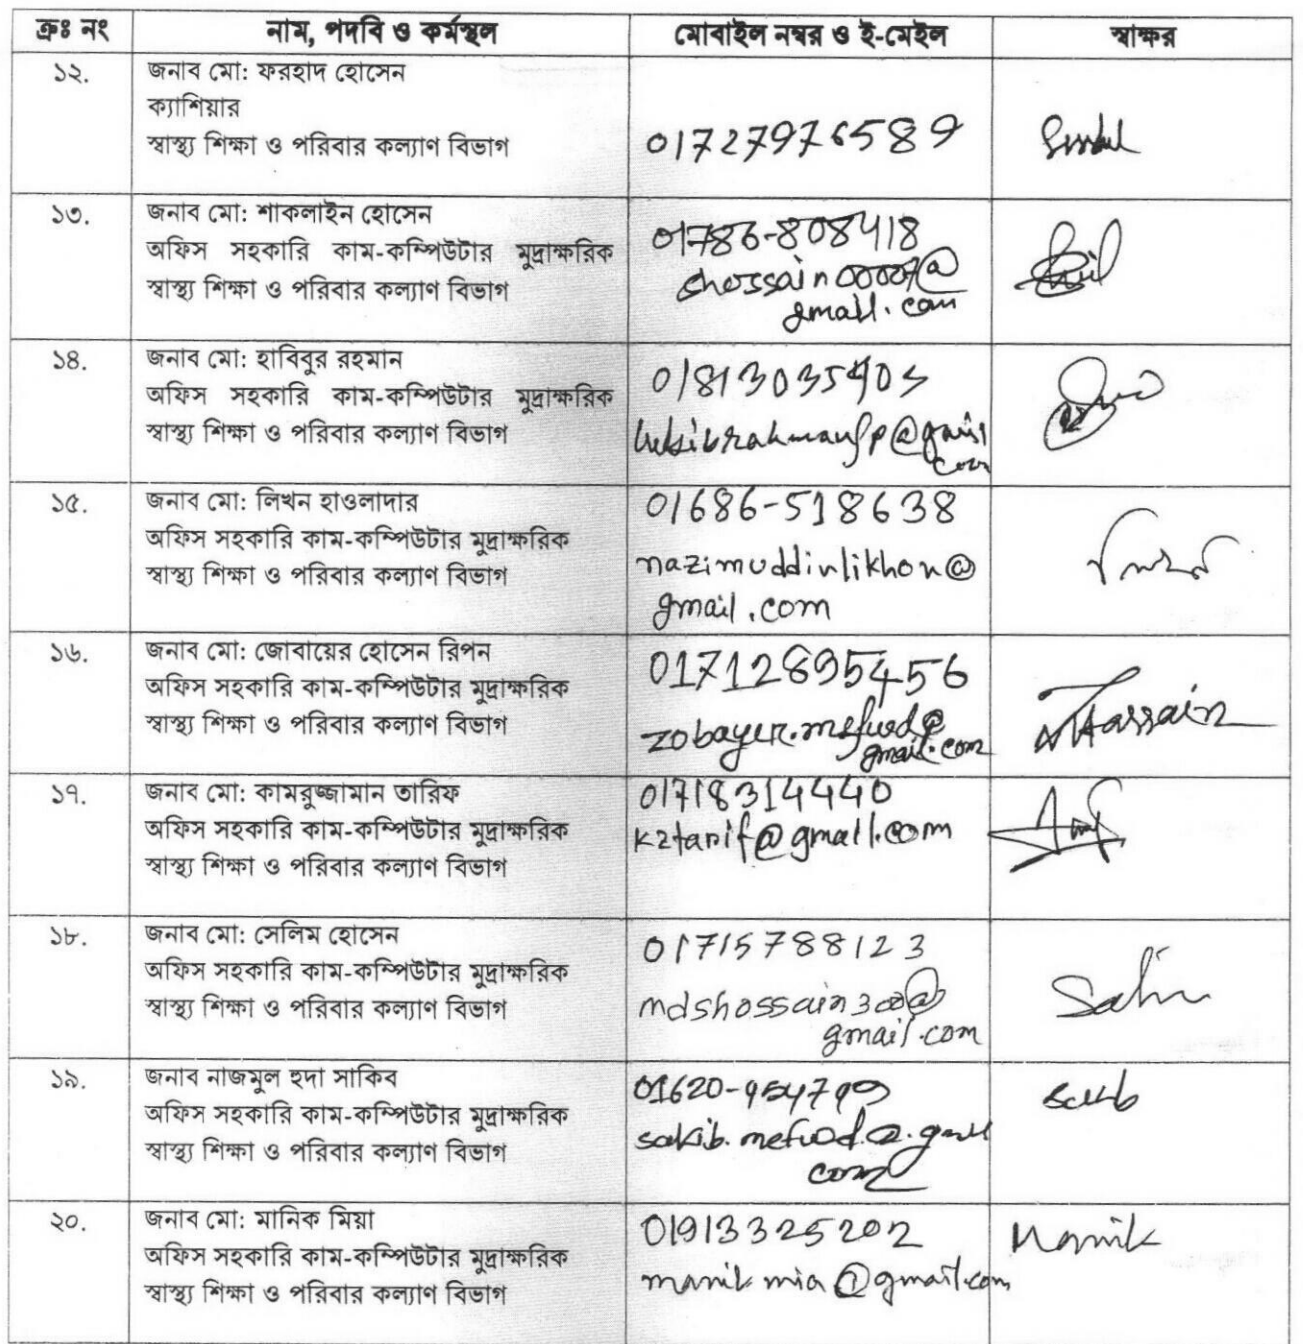 ক্রঃ নং নাম, পদবি ও কর্মস্থল মোবাইল নম্বর ও ই-মেইল স্বাক্ষর
১২. জনাব মো: ফরহাদ হোসেন
ক্যাশিয়ার
স্বাস্থ্য শিক্ষা ও পরিবার কল্যাণ বিভাগ
01727976589
১৩. জনাব মো: শাকলাইন হোসেন
অফিস সহকারি কাম-কম্পিউটার মুদ্রাক্ষরিক
স্বাস্থ্য শিক্ষা ও পরিবার কল্যাণ বিভাগ
01786-808418
shossain00007@
gmail.com
১৪. জনাব মো: হাবিবুর রহমান
অফিস সহকারি কাম-কম্পিউটার মুদ্রাক্ষরিক
স্বাস্থ্য শিক্ষা ও পরিবার কল্যাণ বিভাগ
১৫. জনাব মো: লিখন হাওলাদার
অফিস সহকারি কাম-কম্পিউটার মুদ্রাক্ষরিক
স্বাস্থ্য শিক্ষা ও পরিবার কল্যাণ বিভাগ
01686-518638
nazimuddinlikhon@
gmail.com
১৬. জনাব মো: জোবায়ের হোসেন রিপন
অফিস সহকারি কাম-কম্পিউটার মুদ্রাক্ষরিক
স্বাস্থ্য শিক্ষা ও পরিবার কল্যাণ বিভাগ
01712895456
zobayer.mefwd@
gmail.com
Hossain
১৭. জনাব মো: কামরুজ্জামান তারিফ
অফিস সহকারি কাম-কম্পিউটার মুদ্রাক্ষরিক
স্বাস্থ্য শিক্ষা ও পরিবার কল্যাণ বিভাগ
01718314440
kztarif@gmail.com
১৮. জনাব মো: সেলিম হোসেন
অফিস সহকারি কাম-কম্পিউটার মুদ্রাক্ষরিক
স্বাস্থ্য শিক্ষা ও পরিবার কল্যাণ বিভাগ
01715788123
gmail.com
১৯. জনাব নাজমুল হুদা সাকিব
অফিস সহকারি কাম-কম্পিউটার মুদ্রাক্ষরিক
স্বাস্থ্য শিক্ষা ও পরিবার কল্যাণ বিভাগ
sakib.mefwd.@.gmail
com
sakib
২০. জনাব মো: মানিক মিয়া
অফিস সহকারি কাম-কম্পিউটার মুদ্রাক্ষরিক
স্বাস্থ্য শিক্ষা ও পরিবার কল্যাণ বিভাগ
01913325202
manik mia@gmail.com
Manik